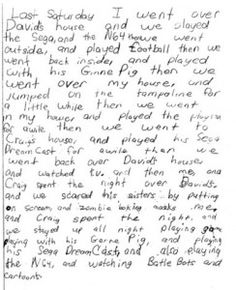 Last Saturday I went over
David's house and we played
the Sega, and the N64 then we went
outside, and played football then we
went back inside, and played
with his Ginne Pig then we
went over my house, and
jumped on the tampaline for
a little while then we went
in my house, and played the
for awile then we went to
Craig's house, and played his Sega
DreamCast for awile then we
went back over David's house
and watched t.v. and then me, and
Craig spent the night over David's
and we scared his sisters by putting
on scream, and zombie looking masks me,
and Craig spent the night, and
we stayed up all night playing
playing with his Genne Pig, and playing
his Sega DreamCast, and also playing
the N64, and watching Battle Bots and
cartoons.